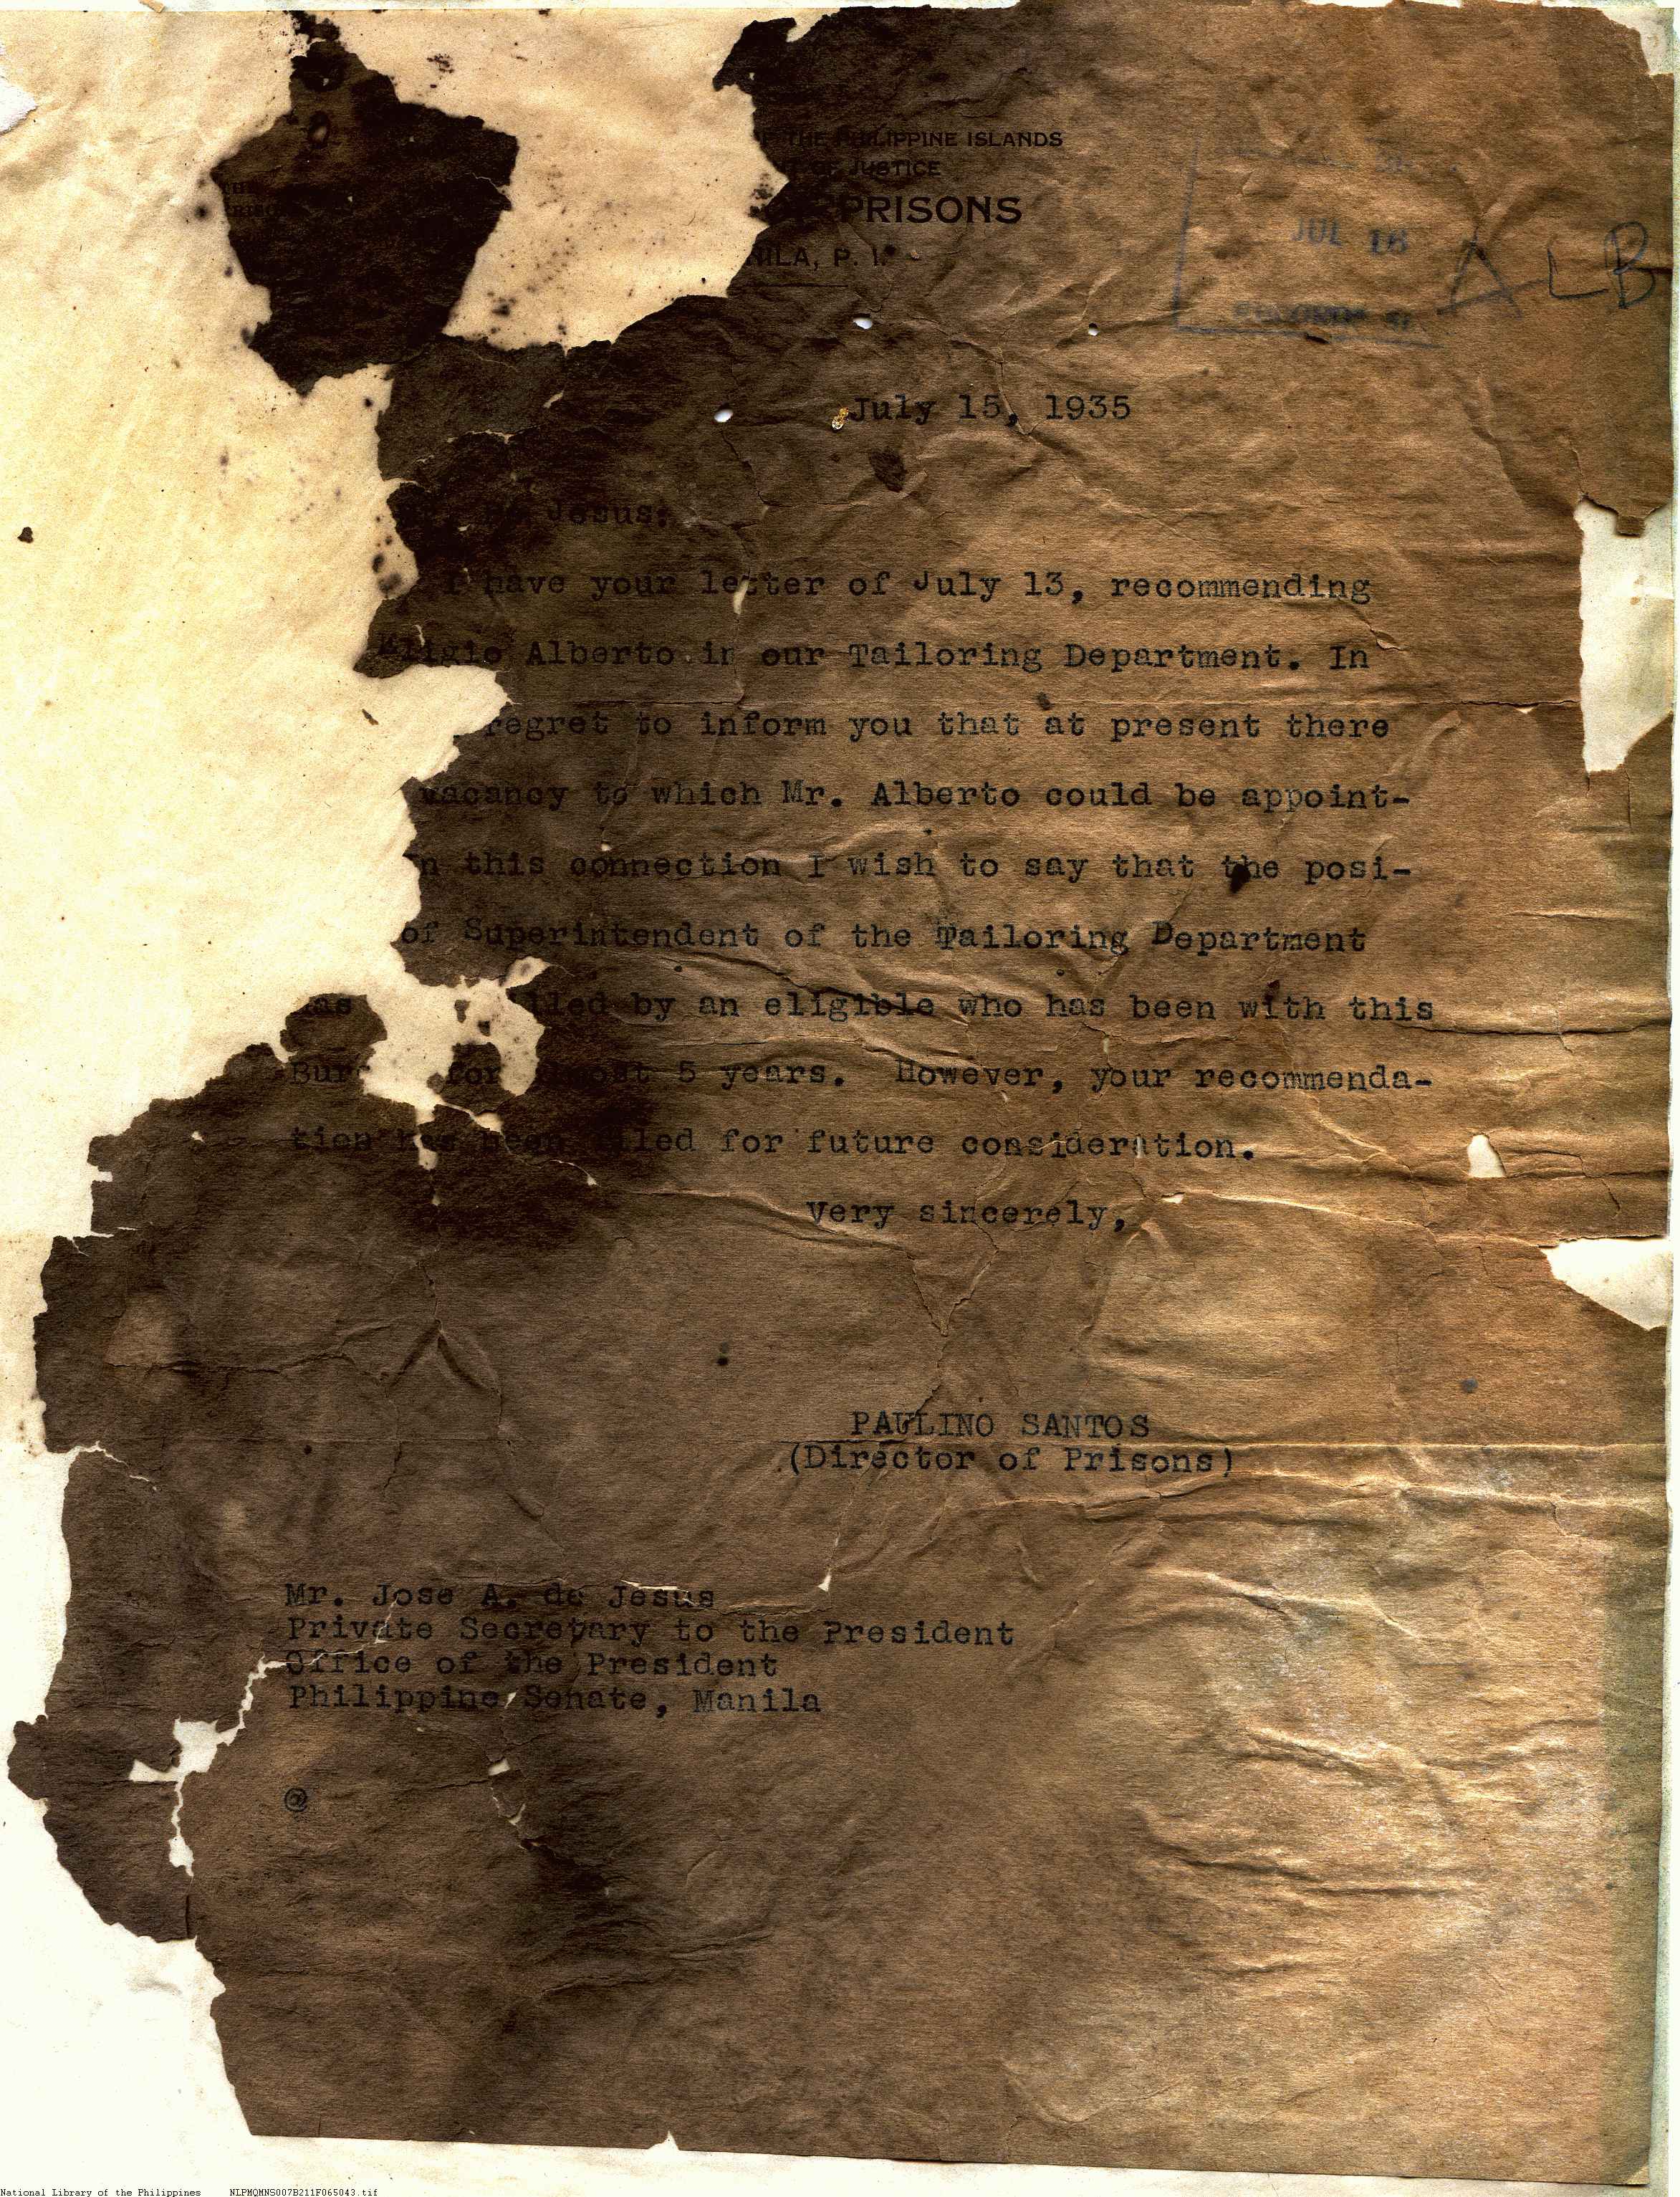 THE PHILIPPINE ISLANDS
OF JUSTICE
PRISONS
P. I.
JUL 16
ALB
July 15, 1935
Jesus:
I have your letter of July 13, recommending
Eligio Alberto in our Tailoring Department. In
regret to inform you that at present there
vacancy to which Mr. Alberto could be appoint-
this connection I wish to say that the posi-
of Superintendent of the Tailoring Department
has by an eligible who has been with this
for almost 5 years. However, your recommenda-
tion has been filed for future consideration.
Very sincerely,
PAULINO SANTOS
(Director of Prisons)
Mr. Jose A. de Jesus
Private Secretary to the President
Office of the President
Philippine Senate, Manila
@
National Library of the Philippines NLPMQMNS007B211F065043.tif